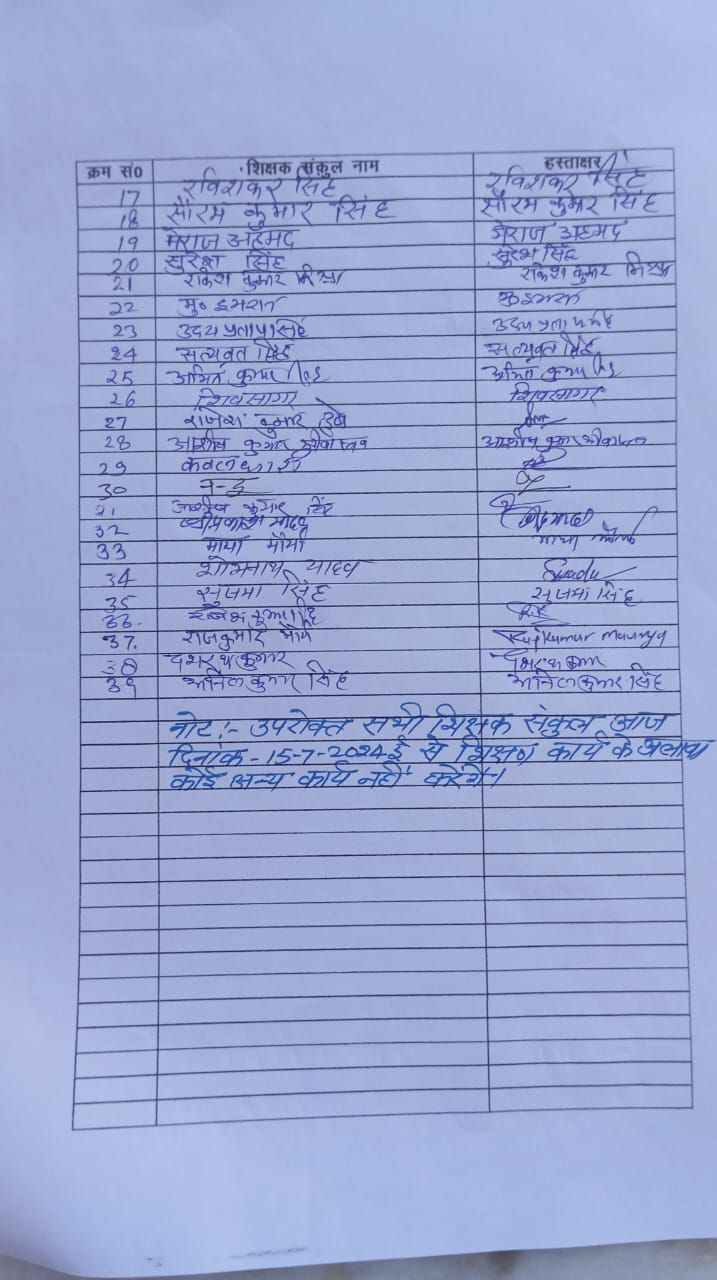 क्रम सं० शिक्षक संकुल नाम हस्ताक्षर
17 रविशंकर सिंह रविशंकर सिंह
18 सौरभ कुमार सिंह सौरभ कुमार सिंह
19 मेराज अहमद मेराज अहमद
20 सुरेश सिंह सुरेश सिंह
21 राकेश कुमार मिश्रा राकेश कुमार मिश्रा
22 मु० इमरान
23 उदय प्रताप सिंह उदय प्रताप सिंह
24 सत्यव्रत सिंह सत्यव्रत सिंह
25 अमित कुमार अमित कुमार
26 शिवसागर शिवसागर
27 राजेश कुमार दुबे
28 आशीष कुमार श्रीवास्तव आशीष कुमार श्रीवास्तव
29
30
31 कुमार सिंह
32
33 माया मौर्या माया मौर्या
34 शोभनाथ यादव
35 सुषमा सिंह सुषमा सिंह
36. कुमार सिंह
37. राजकुमार मौर्य Rajkumar Maurya
38 दशरथ कुमार दशरथ कुमार
39 अनिल कुमार सिंह अनिल कुमार सिंह
नोट:- उपरोक्त सभी शिक्षक संकुल आज
दिनांक - 15-7-2024 ई से शिक्षण कार्य के अलावा
कोई अन्य कार्य नहीं करेंगे।